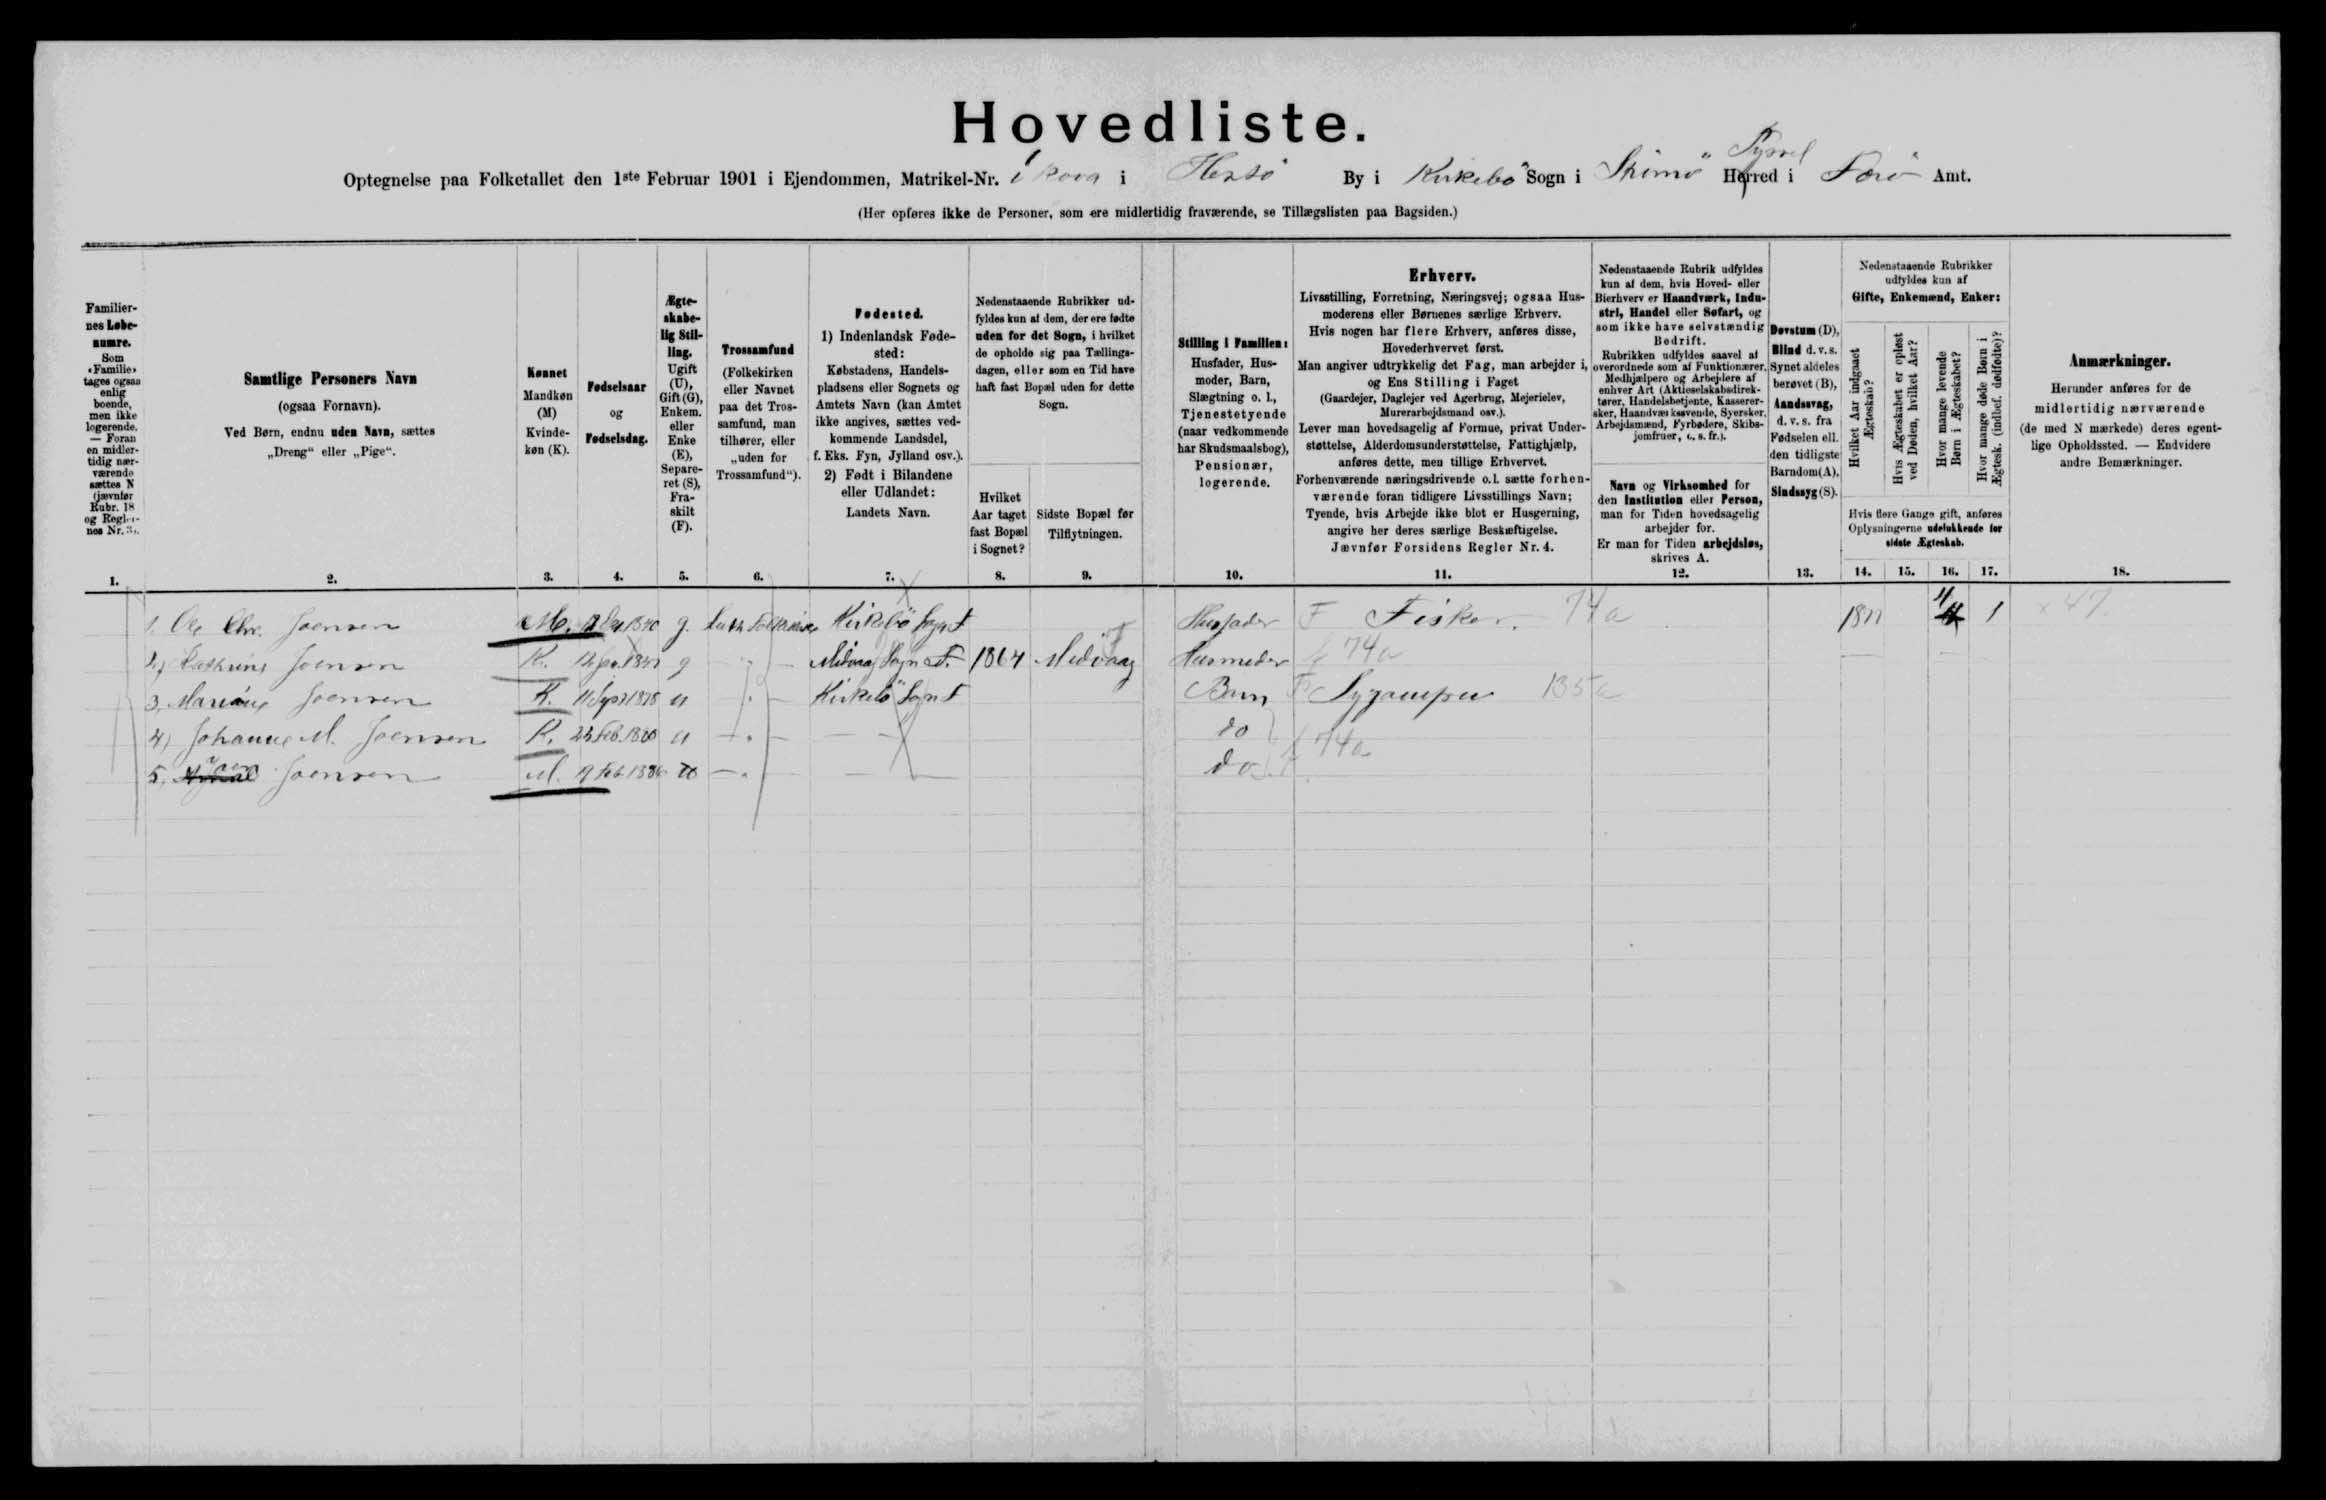 Hovedliste.
Optegnelse paa Folketallet den 1ste Februar 1901 i Ejendommen, Matrikel-Nr. i Kova i Hestö By i Kirkebö Sogn i Strömö Herred Syssel i Færö Amt.
(Her opføres ikke de Personer, som ere midlertidig fraværende, se Tillægslisten paa Bagsiden.)
Familier-
nes Løbe-
numre.
Som
«Familie»
tages ogsaa
enlig
boende,
men ikke
logerende.
— Foran
en midler-
tidig nær-
værende
sættes N
(jævnfør
Rubr. 18
og Regler-
nes Nr. 3).
1.
Samtlige Personers Navn
(ogsaa Fornavn).
Ved Børn, endnu uden Navn, sættes
„Dreng“ eller „Pige“.
2.
Kønnet
Mandkøn
(M)
Kvinde-
køn (K).
3.
Fødselsaar
og
Fødselsdag.
4.
Ægte-
skabe-
lig Stil-
ling.
Ugift
(U),
Gift (G),
Enkem.
eller
Enke
(E),
Separe-
ret (S),
Fra-
skilt
(F).
5.
Trossamfund
(Folkekirken
eller Navnet
paa det Tros-
samfund, man
tilhører, eller
„uden for
Trossamfund“).
6.
Fødested.
1) Indenlandsk Føde-
sted:
Købstadens, Handels-
pladsens eller Sognets og
Amtets Navn (kan Amtet
ikke angives, sættes ved-
kommende Landsdel,
f. Eks. Fyn, Jylland osv.).
2) Født i Bilandene
eller Udlandet:
Landets Navn.
7.
Nedenstaaende Rubrikker ud-
fyldes kun af dem, der ere fødte
uden for det Sogn, i hvilket
de opholde sig paa Tællings-
dagen, eller som en Tid have
haft fast Bopæl uden for dette
Sogn.
Hvilket
Aar taget
fast Bopæl
i Sognet?
8.
Sidste Bopæl før
Tilflytningen.
9.
Stilling i Familien:
Husfader, Hus-
moder, Barn,
Slægtning o. l.,
Tjenestetyende
(naar vedkommende
har Skudsmaalsbog),
Pensionær,
logerende.
10.
Erhverv.
Livsstilling, Forretning, Næringsvej; ogsaa Hus-
moderens eller Børnenes særlige Erhverv.
Hvis nogen har flere Erhverv, anføres disse,
Hovederhvervet først.
Man angiver udtrykkelig det Fag, man arbejder i,
og Ens Stilling i Faget
(Gaardejer, Daglejer ved Agerbrug, Mejerielev,
Murerarbejdsmand osv.).
Lever man hovedsagelig af Formue, privat Under-
støttelse, Alderdomsunderstøttelse, Fattighjælp,
anføres dette, men tillige Erhvervet.
Forhenværende næringsdrivende o. l. sætte forhen-
værende foran tidligere Livsstillings Navn;
Tyende, hvis Arbejde ikke blot er Husgerning,
angive her deres særlige Beskæftigelse.
Jævnfør Forsidens Regler Nr. 4.
11.
Nedenstaaende Rubrik udfyldes
kun af dem, hvis Hoved- eller
Bierhverv er Haandværk, Indu-
stri, Handel eller Søfart, og
som ikke have selvstændig
Bedrift.
Rubrikken udfyldes saavel af
overordnede som af Funktionærer,
Medhjælpere og Arbejdere af
enhver Art (Aktieselskabsdirek-
tører, Handelsbetjente, Kasserer-
sker, Haandværkssvende, Syersker,
Arbejdsmænd, Fyrbødere, Skibs-
jomfruer, o. s. fr.).
Navn og Virksomhed for
den Institution eller Person,
man for Tiden hovedsagelig
arbejder for.
Er man for Tiden arbejdsløs,
skrives A.
12.
Døvstum (D),
Blind d. v. s.
Synet aldeles
berøvet (B),
Aandssvag,
d. v. s. fra
Fødselen ell.
den tidligste
Barndom (A),
Sindssyg (S).
13.
Nedenstaaende Rubrikker
udfyldes kun af
Gifte, Enkemænd, Enker:
Hvilket Aar indgaaet
Ægteskab?
Hvis Ægteskabet er opløst
ved Døden, hvilket Aar?
Hvor mange levende
Børn i Ægteskabet?
Hvor mange døde Børn i
Ægtesk. (indbef. dødfødte)?
Hvis flere Gange gift, anføres
Oplysningerne udelukkende for
sidste Ægteskab.
14. 15. 16. 17.
Anmærkninger.
Herunder anføres for de
midlertidig nærværende
(de med N mærkede) deres egent-
lige Opholdssted. — Endvidere
andre Bemærkninger.
18.
1. Ole Chr. Joensen M. 1840 g. Luth Folkekirke Kirkebö Sogn F Husfader F Fisker. 74a 4 1 x 47
2, Kathrine Joensen K. g Midvaag Sogn F. 1864 Midvaag Husmoder f 74a
3, Joensen K. 11 Sept 1878 u Kirkebö Sogn F Barn F 135a
4) Johanne M. Joensen K. u do f 74a
5, Joensen M. 19 Feb. 1886 do